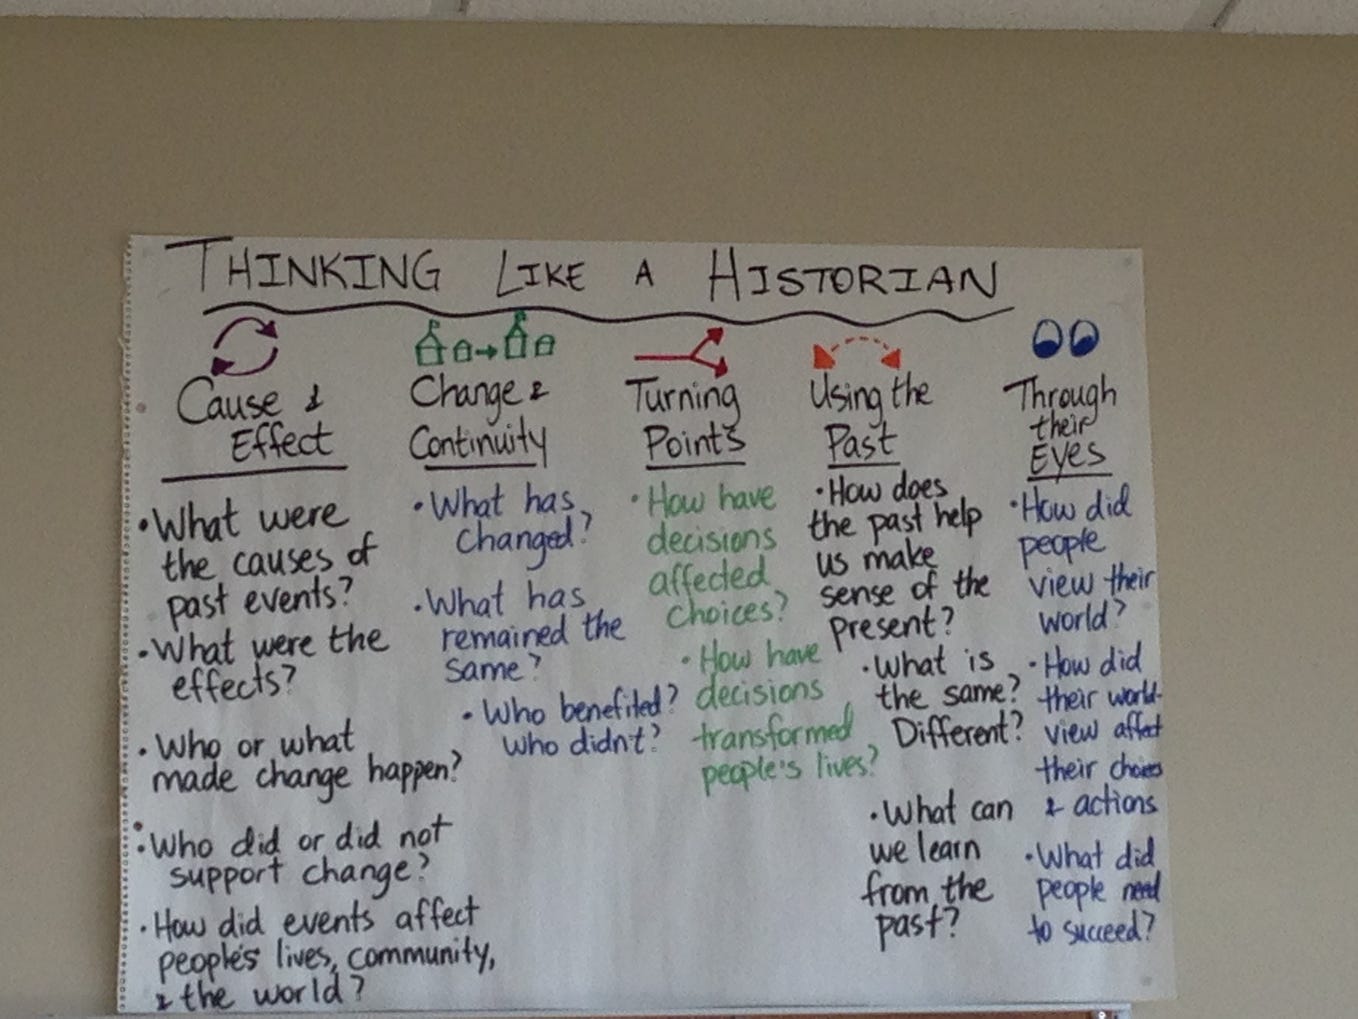 THINKING LIKE A HISTORIAN
Cause &
Effect
• What were
the causes of
past events?
• What were the
effects?
• Who or what
made change happen?
• Who did or did not
support change?
• How did events affect
people's lives, community,
& the world?
Change &
Continuity
• What has
changed?
• What has
remained the
same?
• Who benefited?
Who didn't?
Turning
Points
• How have
decisions
affected
choices?
• How have
decisions
transformed
people's lives?
Using the
Past
• How does
the past help
us make
sense of the
present?
• What is
the same?
Different?
• What can
we learn
from the
past?
Through
their
Eyes
• How did
people
view their
world?
• How did
their world-
view affect
their choices
& actions
• What did
people need
to succeed?